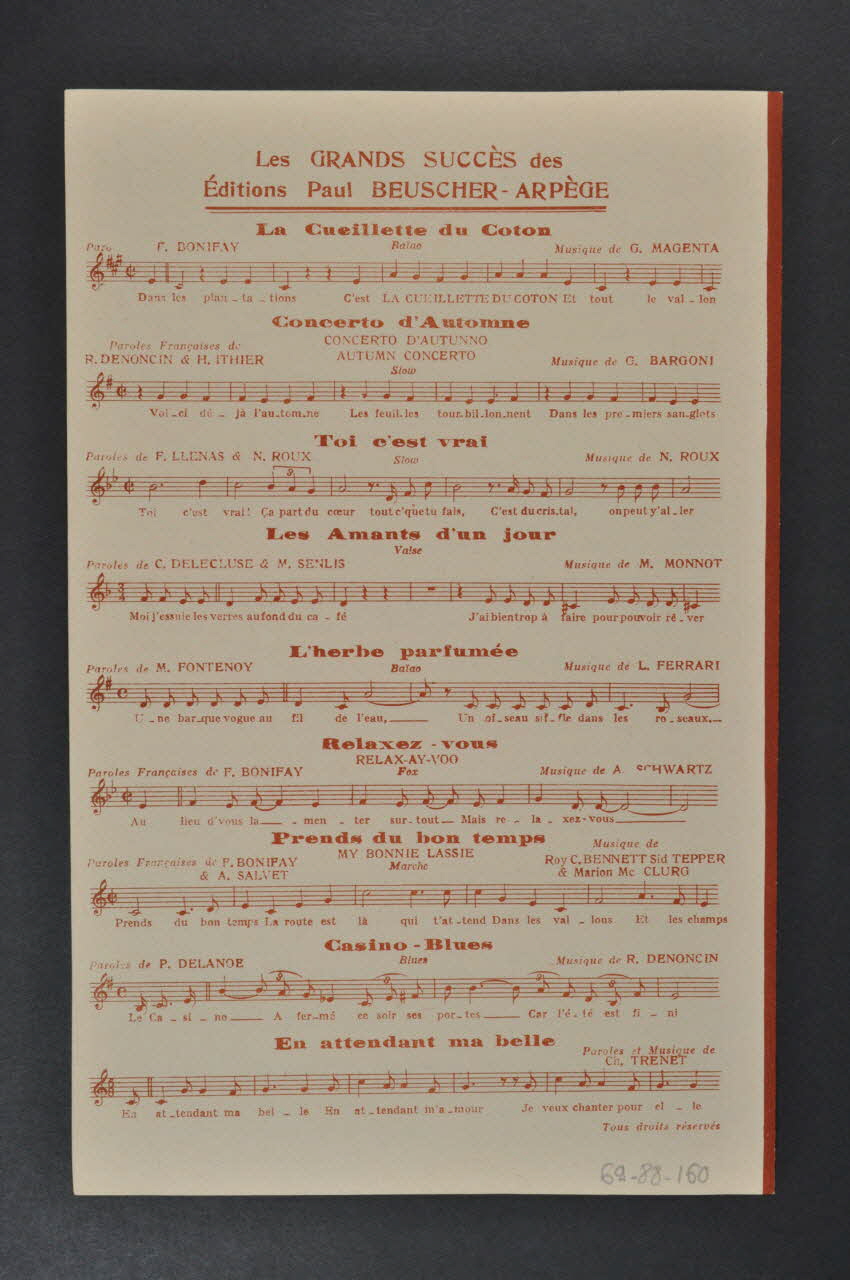 Les GRANDS SUCCÈS des
Éditions Paul BEUSCHER-ARPÈGE
La Cueillette du Coton
Paro F. BONIFAY Baïao Musique de G. MAGENTA
Dans les plan_ta_tions C'est LA CUEILLETTE DU COTON Et tout le val_lon
Concerto d'Automne
Paroles Françaises de CONCERTO D'AUTUNNO
R. DENONCIN & H. ITHIER AUTUMN CONCERTO Musique de C. BARGONI
Slow
Voi_ci dé_jà l'au_tom_ne Les feuil_les tour_bil_lon_nent Dans les pre_miers san_glots
Toi c'est vrai
Paroles de F. LLENAS & N. ROUX Slow Musique de N. ROUX
3
Toi c'est vrai! Ça part du cœur tout c'que tu fais, C'est du cris_tal, on peut y'al_ler
Les Amants d'un jour
Valse
Paroles de C. DELECLUSE & M. SENLIS Musique de M. MONNOT
Moi j'essuie les verres au fond du ca_fé J'ai bien trop à faire pour pouvoir rê_ver
L'herbe parfumée
Paroles de M. FONTENOY Baïao Musique de L. FERRARI
U_ne bar_que vogue au fil de l'eau,___ Un oi_seau sif_fle dans les ro_seaux,__
Relaxez-vous
RELAX-AY-VOO
Paroles Françaises de F. BONIFAY Fox Musique de A. SCHWARTZ
Au lieu d'vous la___men_ter sur_tout__ Mais re_la_xez-vous___
Prends du bon temps
MY BONNIE LASSIE Musique de
Paroles Françaises de F. BONIFAY Marche Roy C. BENNETT Sid TEPPER
& A. SALVET & Marion Mc CLURG
Prends du bon temps La route est là qui t'at_tend Dans les val_lons Et les champs
Casino-Blues
Paroles de P. DELANOE Blues Musique de R. DENONCIN
3 3 3 3
Le Ca_si_no___ A fer_mé ce soir ses por_tes___ Car l'é_té est fi_ni
En attendant ma belle
Paroles et Musique de
Ch. TRENET
En at_tendant ma bel_le En at_tendant m'a_mour Je veux chanter pour el_le
Tous droits réservés
69-88-160